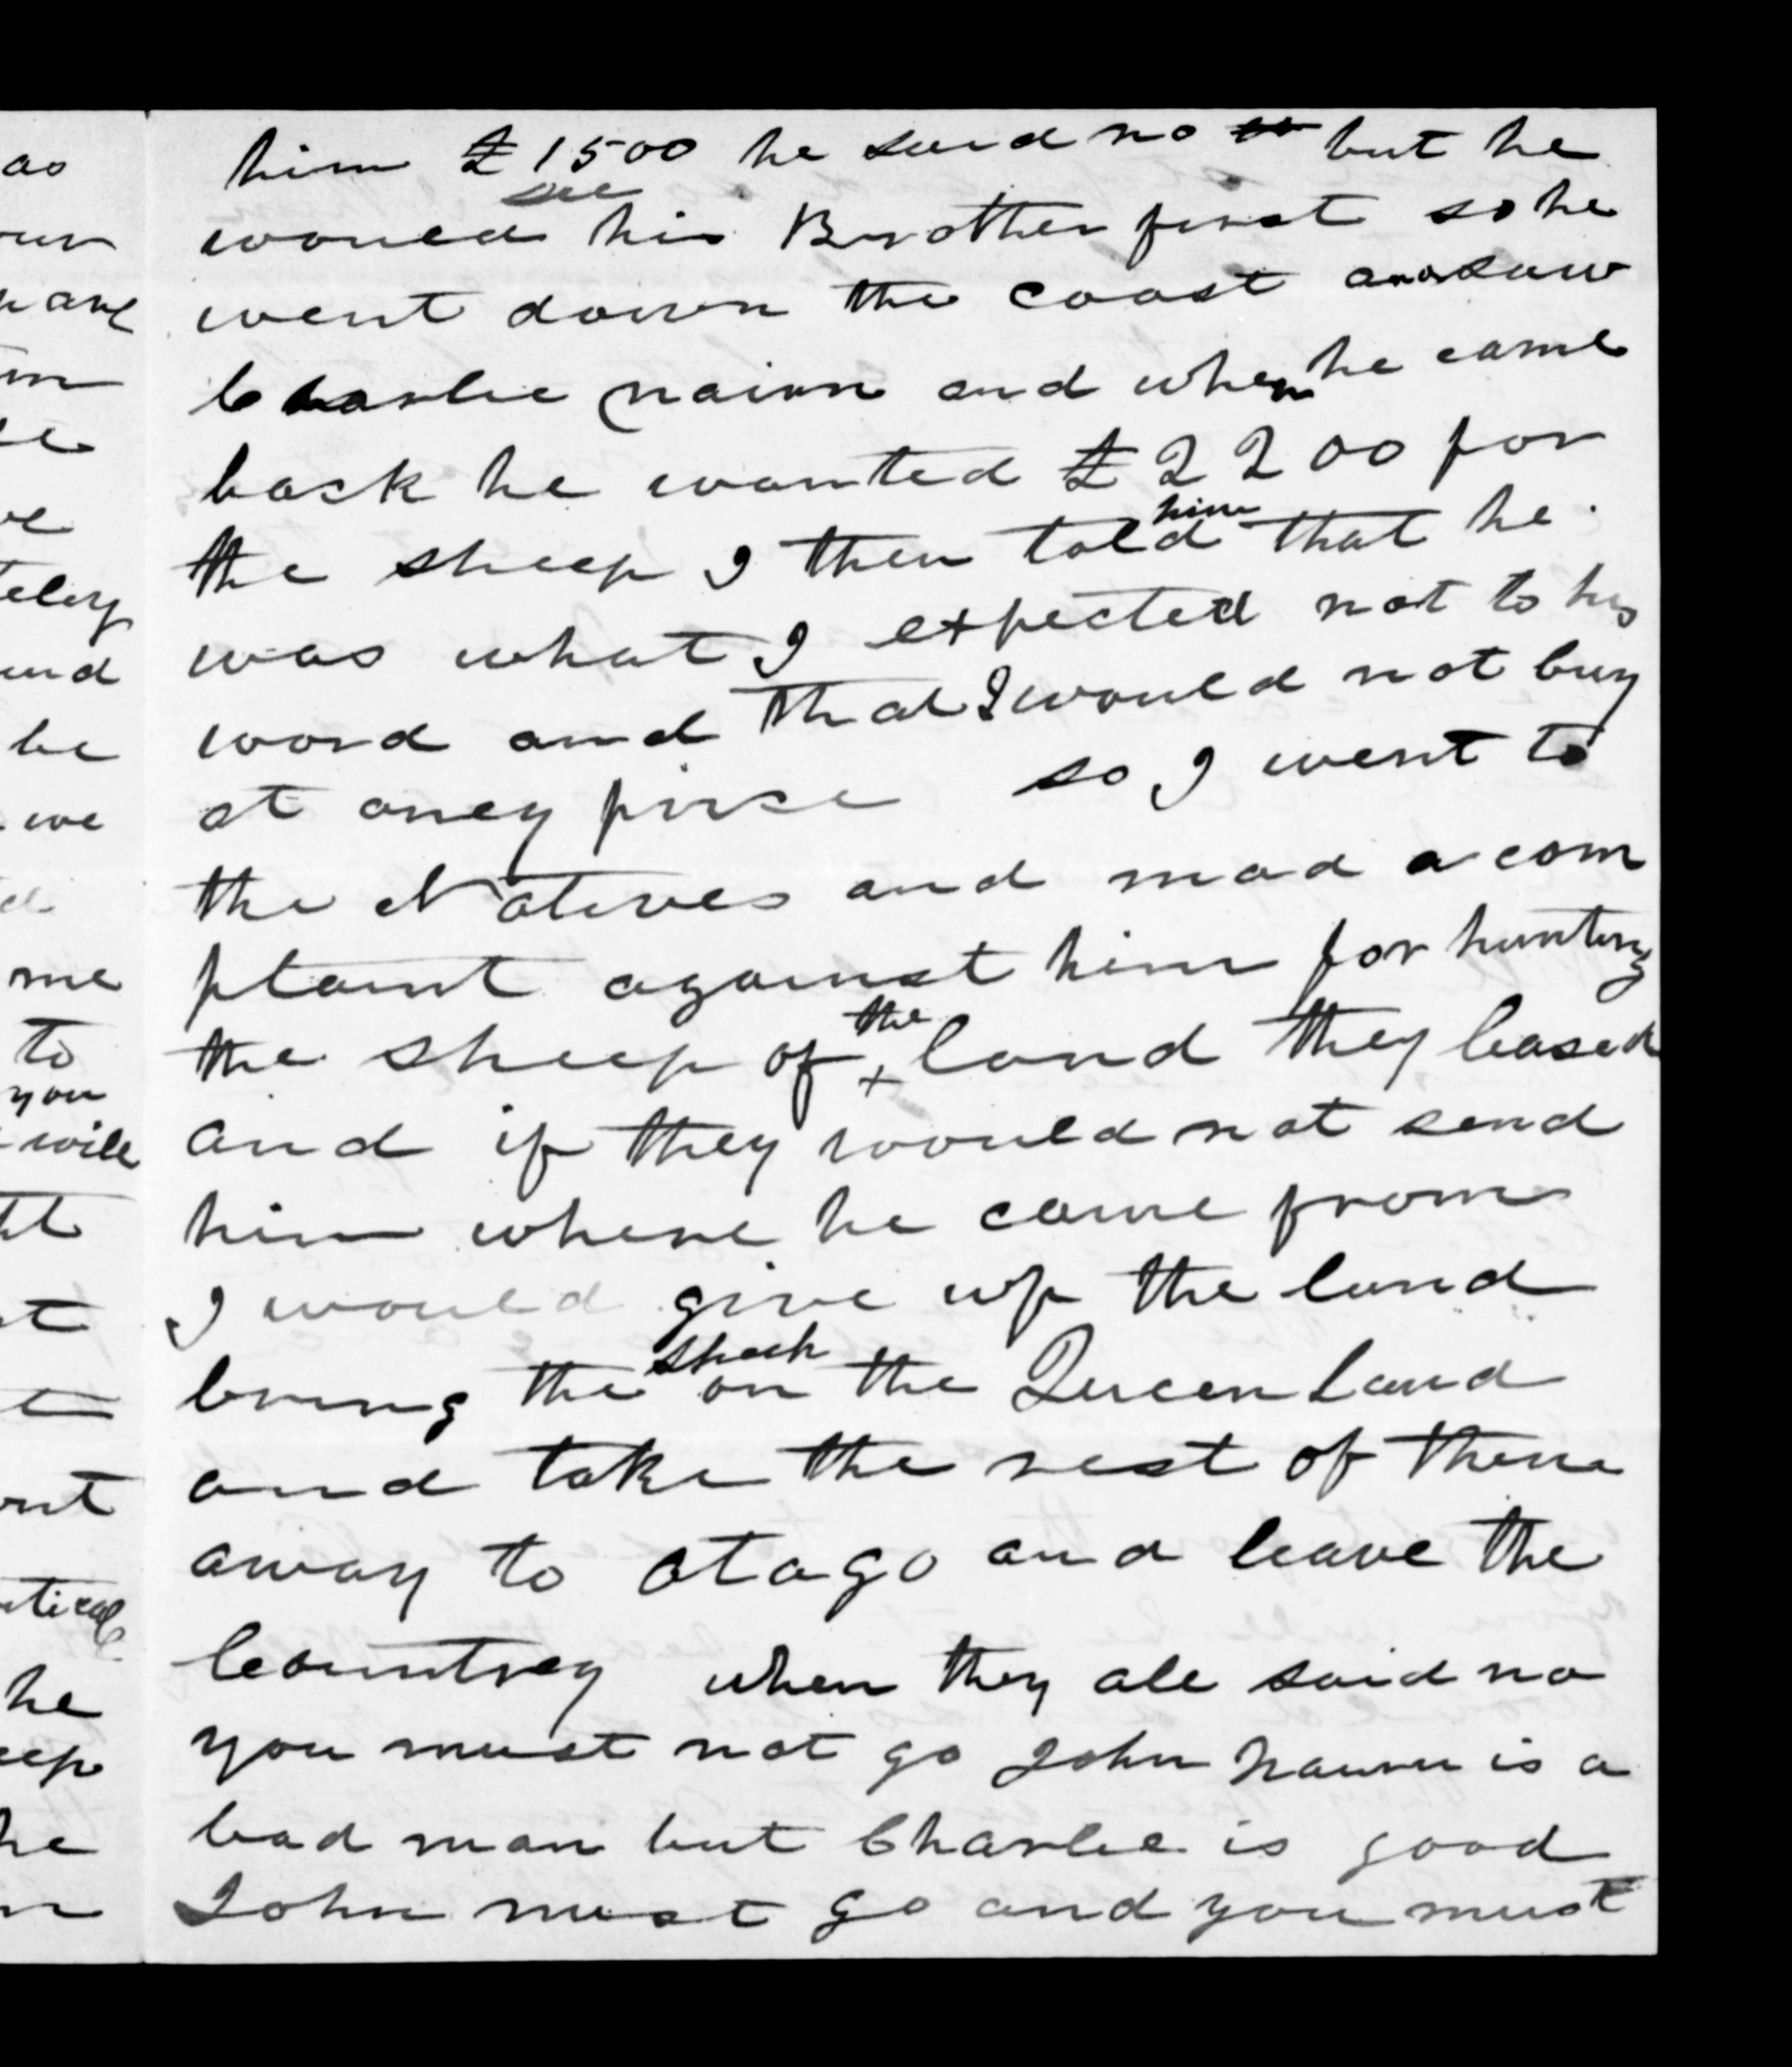 him £1500 he said no but he
would see his Brother first so he
went down the coast and saw
Charlie nairn and when he came
back he wanted £2200 for
the sheep I then told him that he
was what I expected not to his
word and that I would not buy
at aney prise so I went to
the Natives and mad a com
plaint against him for hunting
the sheep of the land they leased
and if they would not send
him where he came from
I would give up the land
bring the sheep on the Queen Land
and take the rest of them
away to Otago and leave the
Countrey when they all said no
you must not go John Nairn is a
bad man but Charlie is good
John must go and you must